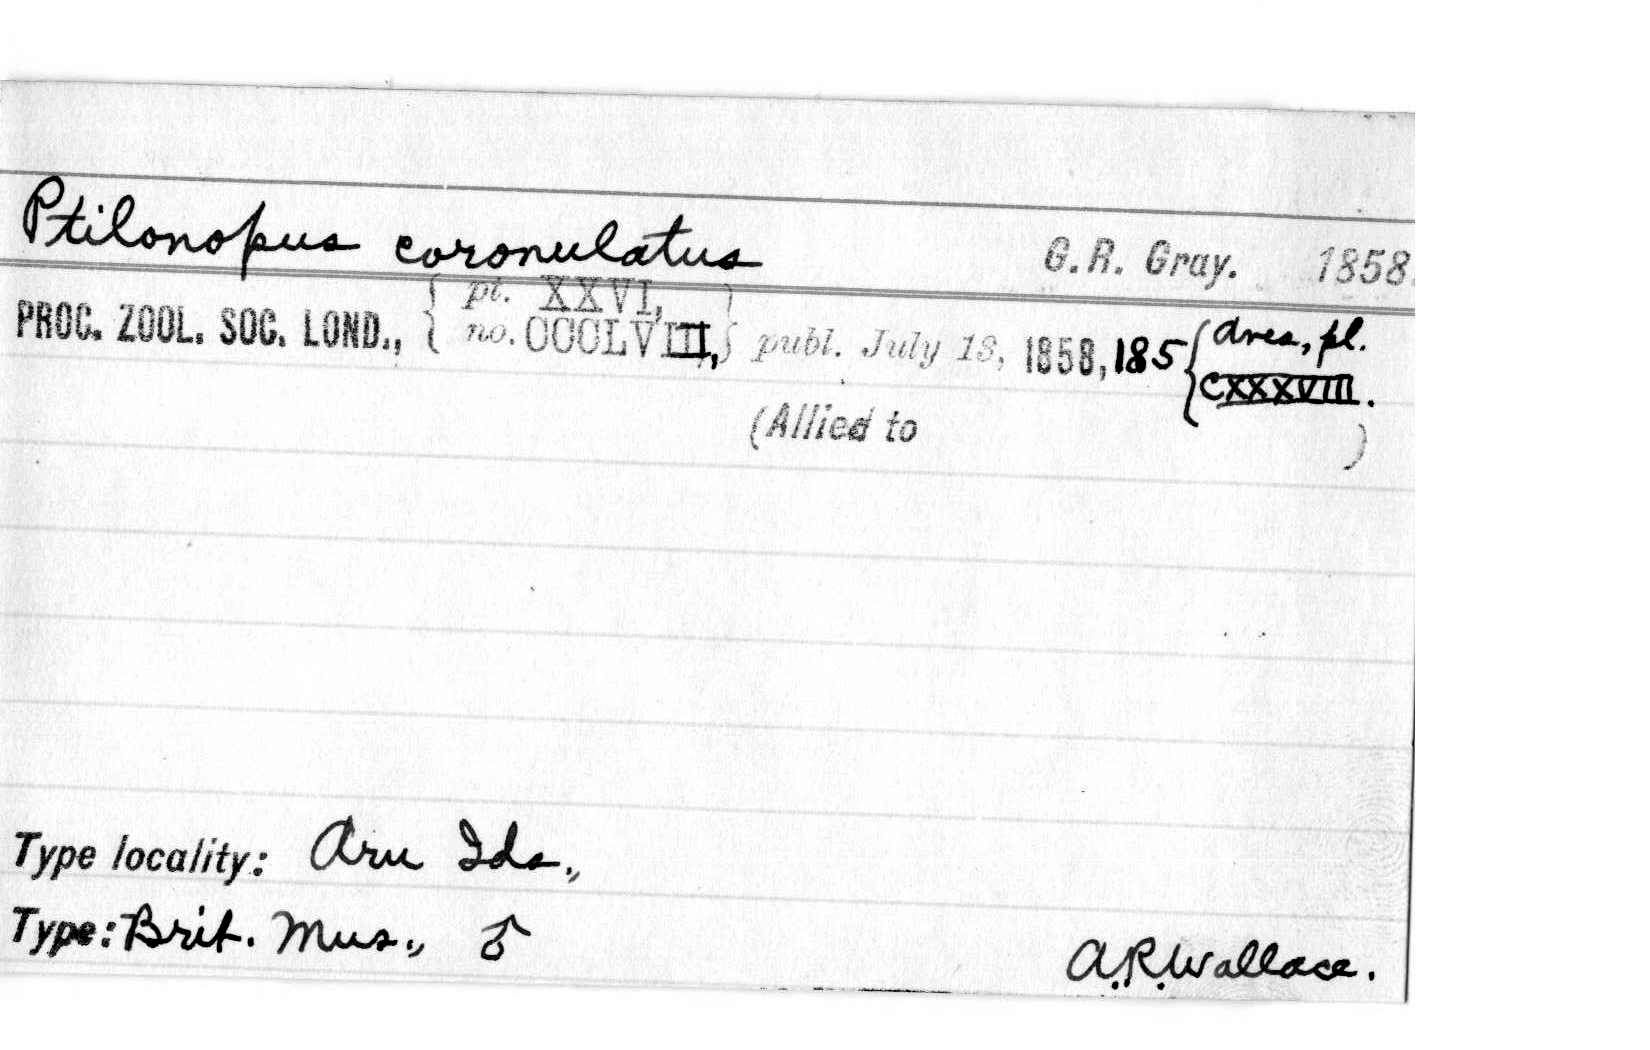 Ptilonopus coronulatus G.R. Gray. 1858.
PROC. ZOOL. SOC. LOND., { pt. XXVI, no. CCCLVIII, } publ. July 13, 1858, 185 { Aves, pl. CXXXVIII.
(Allied to )
Type locality: Aru Ids.,
Type: Brit. Mus., ♂ A.R. Wallace.